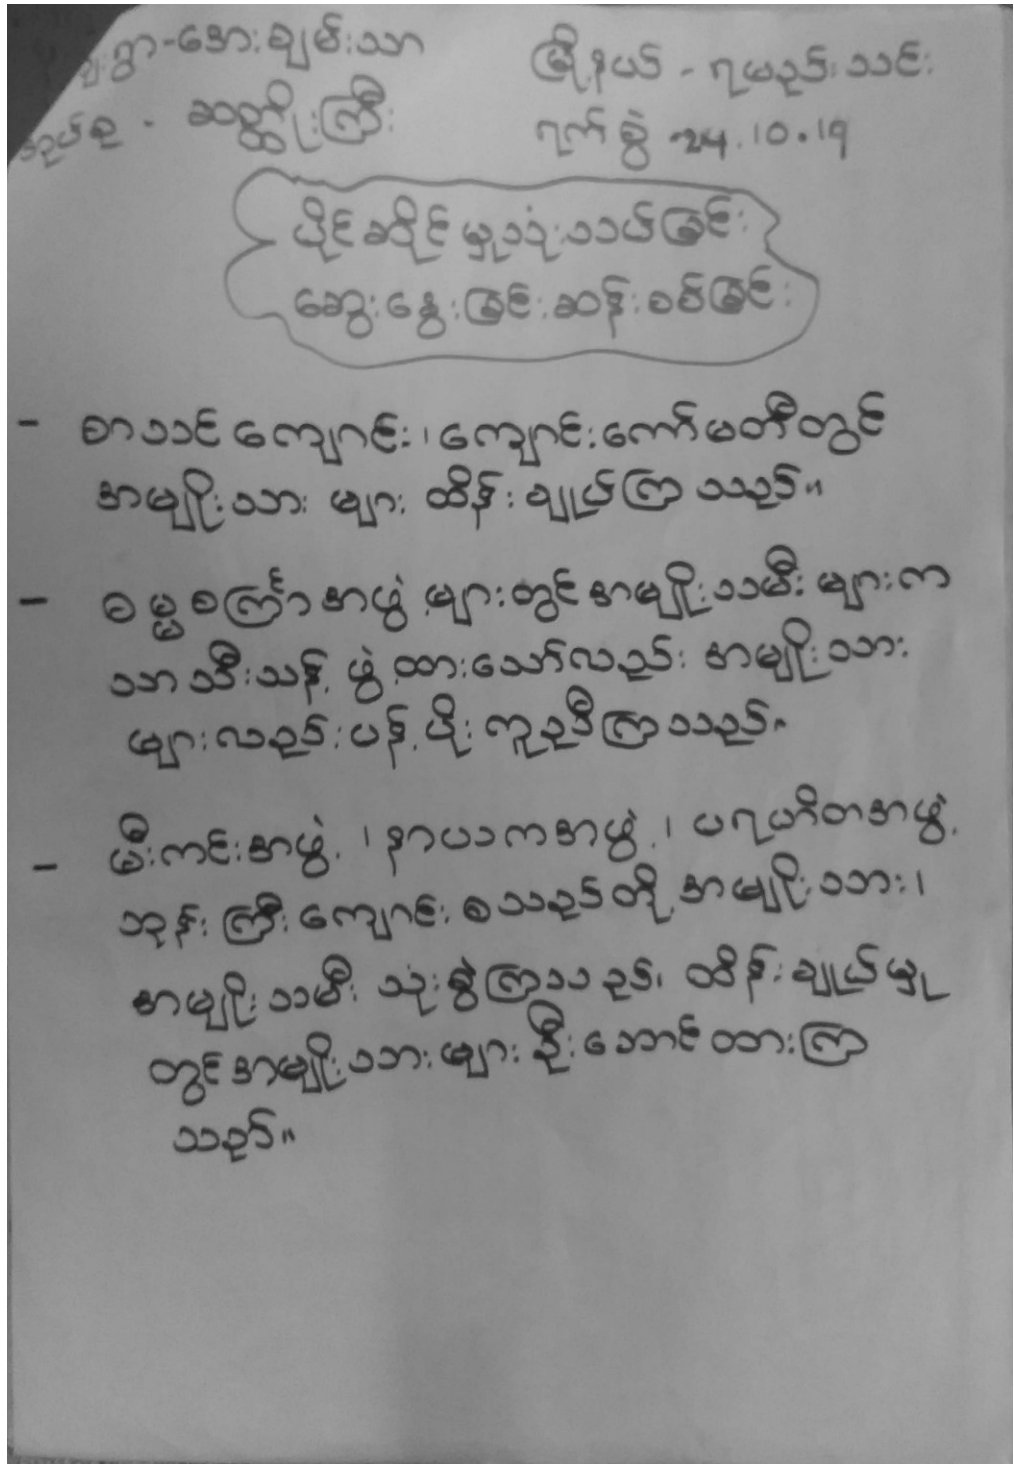 ကျေးရွာ-အေးချမ်းသာ မြို့နယ် - ရမည်းသင်း
အုပ်စု - ဆတ္တိုးကြီး ရက်စွဲ - 24.10.19
ပိုင်ဆိုင်မှုသုံးသပ်ခြင်း
ဆွေးနွေးခြင်းဆန်းစစ်ခြင်း
- စာသင်ကျောင်း၊ ကျောင်းကော်မတီတွင်
အမျိုးသား များ ထိန်းချုပ်ကြသည်။
- ဓမ္မစကြာအဖွဲ့ များတွင်အမျိုးသမီး များက
သာ သီးသန့် ဖွဲ့ထားသော်လည်း အမျိုးသား
များလည်းပန့်ပိုး ကူညီကြသည်။
- မီးကင်းအဖွဲ့ ၊ နာယကအဖွဲ့ ၊ ပရဟိတအဖွဲ့
ဘုန်းကြီးကျောင်း စသည်တို့ အမျိုးသား၊
အမျိုးသမီး သုံးစွဲကြသည်၊ ထိန်းချုပ်မှု
တွင်အမျိုးသားများ ဦးဆောင်ထားကြ
သည်။